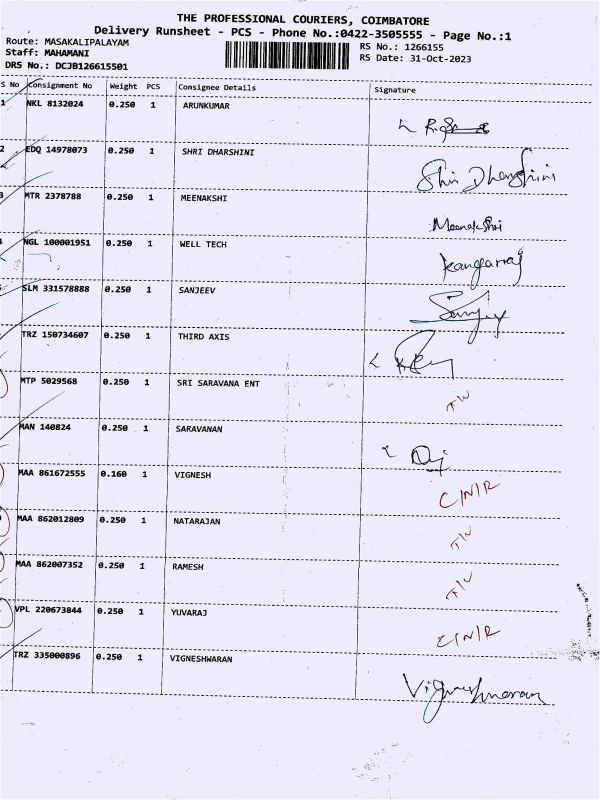 THE PROFESSIONAL COURIERS, COIMBATORE
Delivery Runsheet - PCS - Phone No.:0422-3505555 - Page No.:1
Route: MASAKALIPALAYAM
Staff: MAHAMANI
DRS No.: DCJB126615501
RS No.: 1266155
RS Date: 31-Oct-2023
S No Consignment No Weight PCS Consignee Details Signature
1 NKL 8132024 0.250 1 ARUNKUMAR
2 EDQ 14978073 0.250 1 SHRI DHARSHINI Shri Dharshini
MTR 2378788 0.250 1 MEENAKSHI Meenakshi
NGL 100001951 0.250 1 WELL TECH Kangarraj
SLM 331578888 0.250 1 SANJEEV Sanjeev
TRZ 150734607 0.250 1 THIRD AXIS
MTP 5029568 0.250 1 SRI SARAVANA ENT
MAN 140824 0.250 1 SARAVANAN
MAA 861672555 0.160 1 VIGNESH C/N/R
MAA 862012809 0.250 1 NATARAJAN
MAA 862007352 0.250 1 RAMESH
VPL 220673844 0.250 1 YUVARAJ C/N/R
TRZ 335000896 0.250 1 VIGNESHWARAN Vigneshwaran